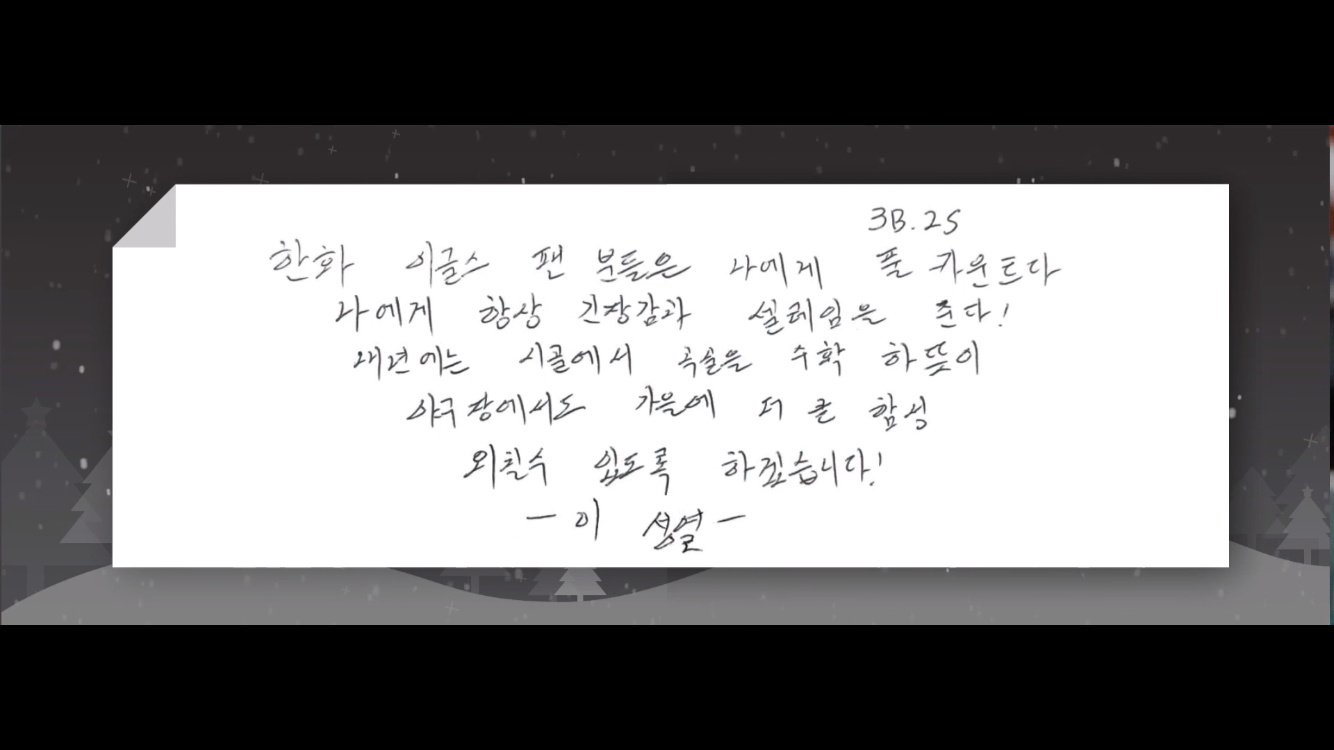 3B.2S
한화 이글스 팬 분들은 나에게 풀 카운트다
나에게 항상 긴장감과 설레임을 준다!
내년에는 시골에서 곡실을 수확 하뜻이
야구장에서도 가을에 더 큰 함성
외칠수 있도록 하겠습니다!
- 이 성열 -